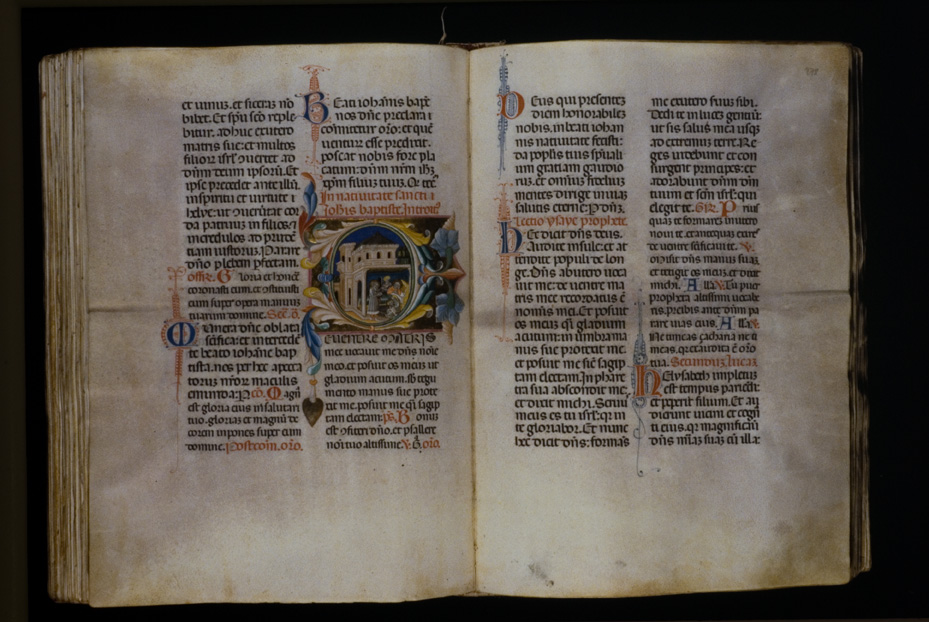 et uinuz. et siceraz nō
bibet. Et spū scō reple
bitur. adhuc ex utero
matris sue: et multos
filior isrl ꝯuertet ad
dnm deum ipsoru. Et
ipse precedet ante illū.
in spiritu et uirtute
helye: ut ꝯuertat cor
da patruz in filios: et
incredulos ad prudē
tiam iustoruz. Parare
dno plebem pfectam.
offic. G loria et honore
coronasti eum. et ꝯstituisti
eum super opera manuuz
tuarum domine. Sec.
Munera dne oblata
scifica: et intercede
te beato iohane bap
tista. nos per hec a pecca
toruz nror maculis
emunda: P. co. Magn
est gloria eius in salutari
tuo. gloriaz et magnū de
corem impones super eum
domine. Postcom. oro.
Beati iohanis bapt
nos dne preclara
comitetur oro: et quē
uentur esse predixit.
poscat nobis fore pla
catum. dnm nrm ihm
xpm filium tuuz. Q. tec
In natiuitate sancti
iohis baptiste. Introit
DE UENTRE MATRIS
mee uocauit me dns noie
meo. et posuit os meuz ut
gladium acutum. sb tegu
mento manus sue prote
xit me. posuit me qsi sagip
tam electam. ps. Bonuz
est ꝯfiteri dno. et psallere
noi tuo altissime. V. G. oro.
Deus qui presentez
diem honorabilez
nobis. in beati iohan
nis natiuitate fecisti:
da poplis tuis spūali
um gratiam gaudio
ruz. et omniuz fideliuz
mentes dirige in uiaz
salutis eterne. P. dnz.
Lectio ysaye prophete.
Hec dicit dns deus.
Audite insule: et at
tendite populi de lon
ge. Dns ab utero uoca
uit me: de uentre ma
tris mee recordatus ē
nominis mei. Et posuit
os meuz qsi gladium
acutum: in umbra ma
nus sue protexit me.
et posuit me sic sagip
tam electam. In phare
tra sua abscondit me.
et dixit michi. Seruus
meus es tu isrl: qr in
te gloriabor. Et nunc
hec dicit dns: formas
me ex utero seruuz sibi.
Dedi te in luces gentiuz
ut sis salus mea usqz
ad extremuz terre. Re
ges uidebunt et con
surgent principes: et
adorabunt dnm dm
tuum et scm isrl: qui
elegit te. Gr. Prius
quaz te formarez in utero
noui te. et antequaz exires
de uentre scificaui te. V.
Misit dns manus suaz
et tetigit os meuz. et dixit
michi. Alla. V. Tu puer
propheta altissimi uocabe
ris. preibis ante dnm pa
rare uias eius. Alla.
Ne timeas zacharia
Secundum lucaz.
Helysabeth impletuz
est tempus pariendi:
et peperit filium. Et au
dierunt uicini et cogn
ti eius. qr magnificau
dns miaz suaz cū illa: